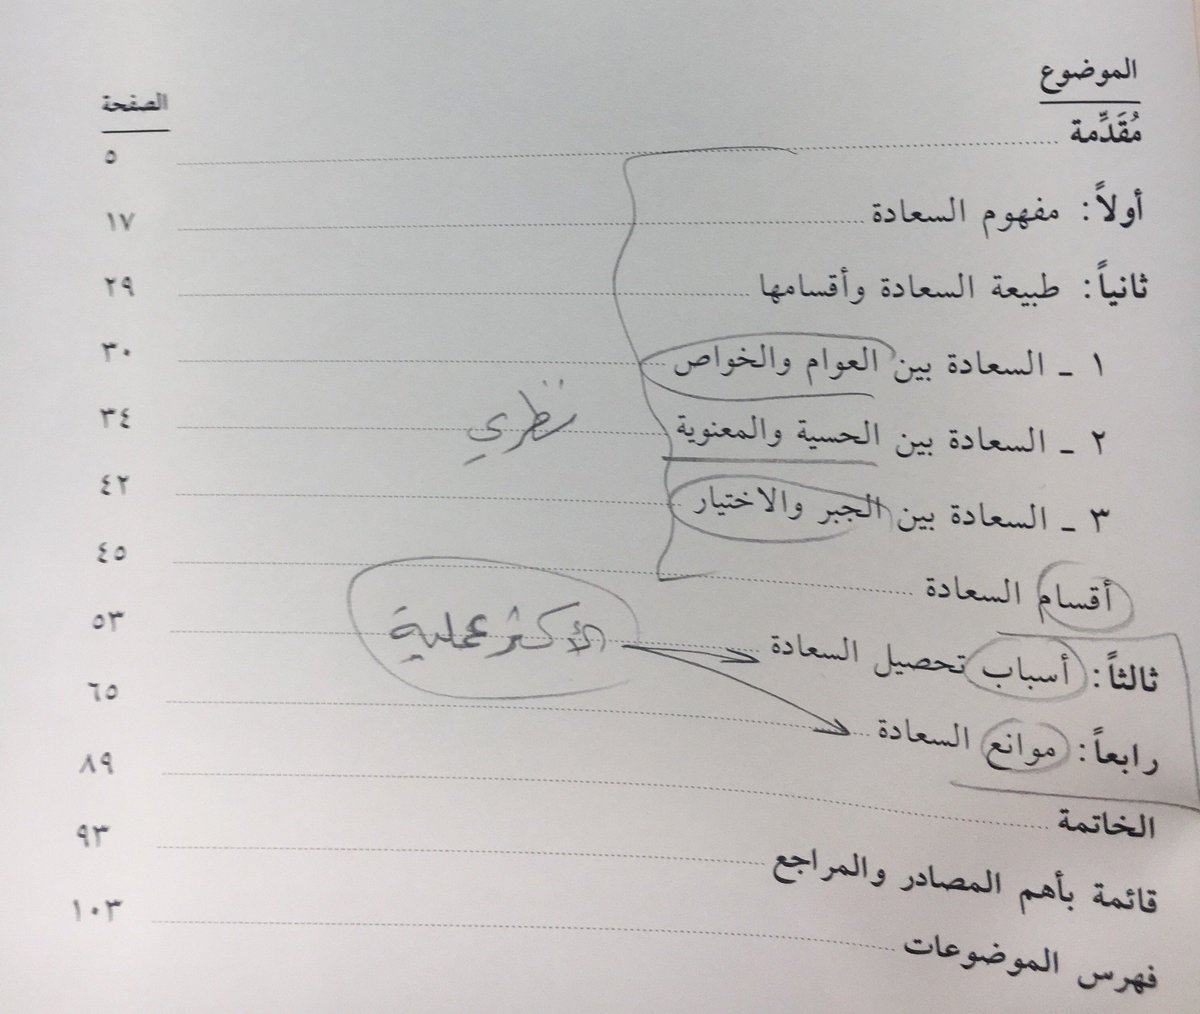 الموضوع الصفحة
مُقَدِّمة ٥
أولاً: مفهوم السعادة ١٧
ثانياً: طبيعة السعادة وأقسامها ٢٩
١ ـ السعادة بين العوام والخواص ٣٠
٢ ـ السعادة بين الحسية والمعنوية ٣٤
نظري
٣ ـ السعادة بين الجبر والاختيار ٤٢
أقسام السعادة ٤٥
الأكثر عملية
ثالثاً: أسباب تحصيل السعادة ٥٣
رابعاً: موانع السعادة ٦٥
الخاتمة ٨٩
قائمة بأهم المصادر والمراجع ٩٣
فهرس الموضوعات ١٠٣